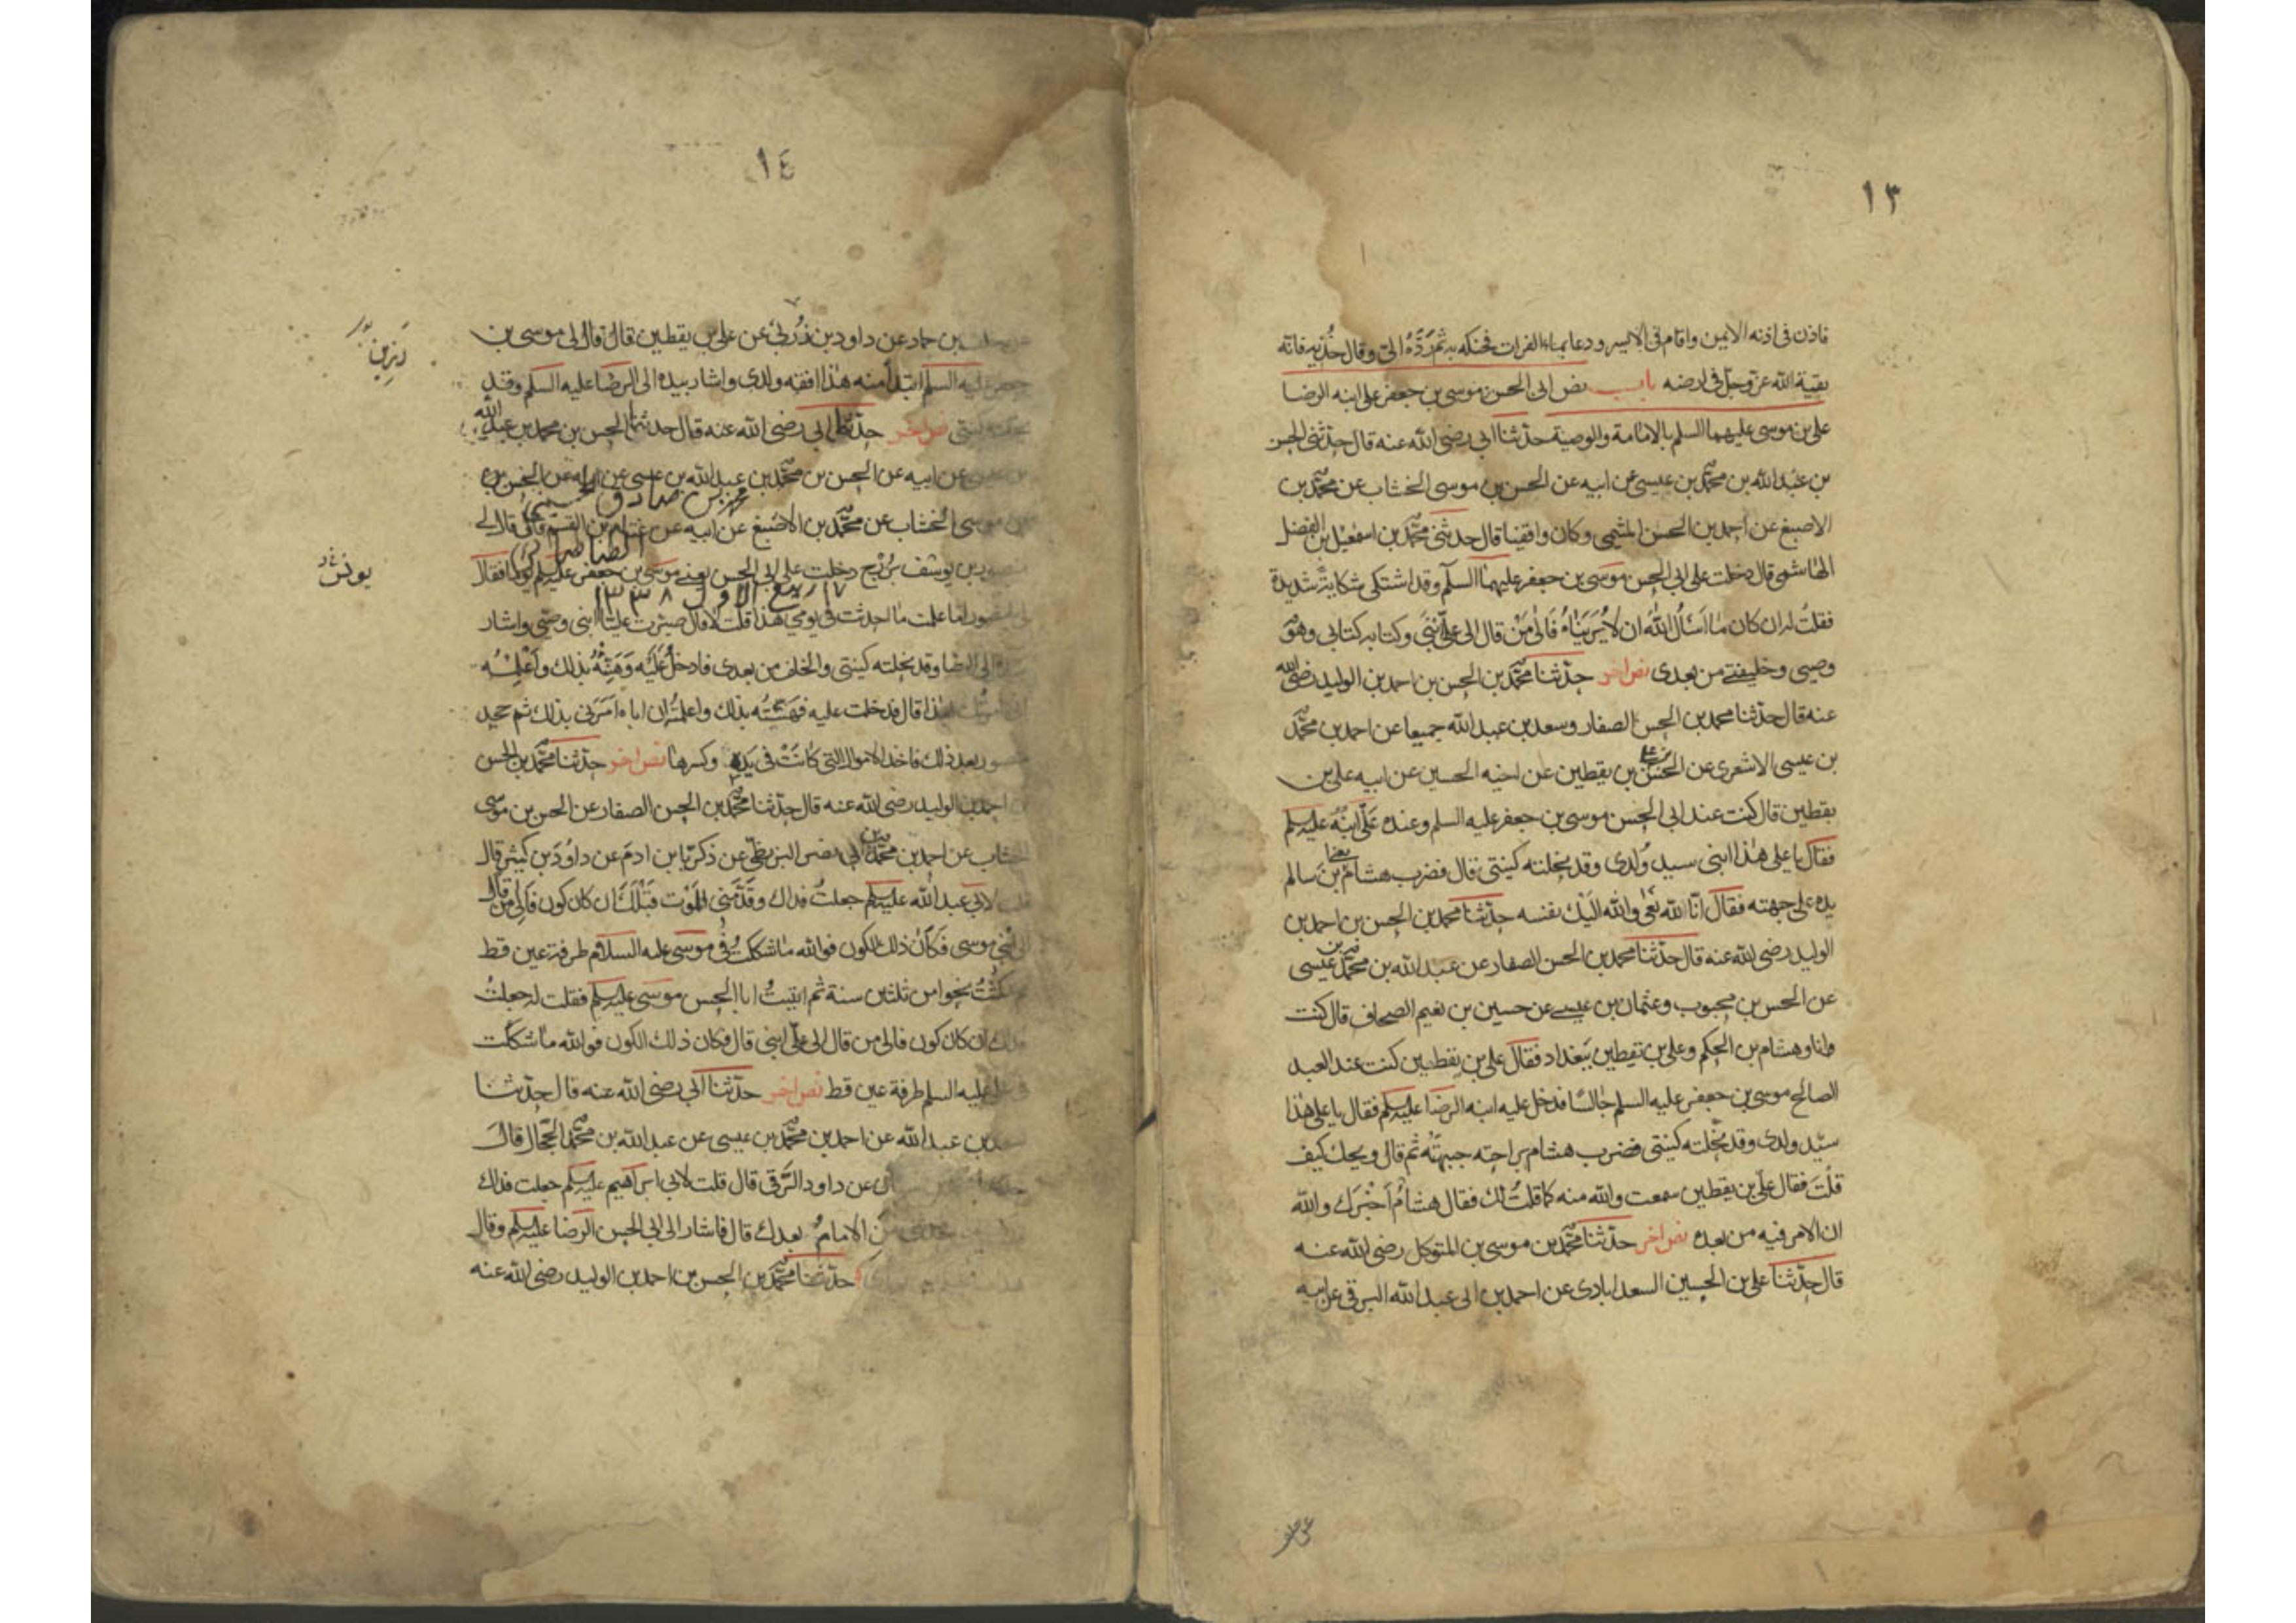 ١٣
فاذن فى اذنه الايمن واقام فى الايسر ودعا بماء الفرات فحنكه به ثم رَدَّهُ الىّ وقال خُذيه فانّه
بقية الله عزّ وجلّ فى ارضه باب نص ابى الحسن موسى بن جعفر على ابنه الرضا
على بن موسى عليهما السلم بالامامة والوصية حدّثنا ابى رضى الله عنه قال حدّثنى الحسن
بن عبد الله بن محمّد بن عيسى عن ابيه عن الحسن بن موسى الخشاب عن محمّد بن
الاصبغ عن احمد بن الحسن الميثمى وكان واقفيا قال حدثنى محمّد بن اسمعيل بن الفضل
الهاشمى قال دخلت على ابى الحسن موسى بن جعفر عليهما السلم وقد اشتكى شكاية شديدة
فقلتُ له ان كان ما اَسئَلُ اللهَ ان لا يُرِيَنَاهُ فَاِلىٰ مَنْ قال الى علىّ ابنى وكتابه كتابى وهو
وصيى وخليفتى من بعدى نص اخر حدّثنا محمّد بن الحسن بن احمد بن الوليد رضى الله
عنه قال حدّثنا محمد بن الحسن الصفار وسعد بن عبد الله جميعا عن احمد بن محمّد
بن عيسى الاشعرى عن الحسن بن على بن يقطين عن اخيه الحسين عن ابيه على بن
يقطين قال كنت عند ابى الحسن موسى بن جعفر عليه السلم وعنده علىّ ابنُهُ عليه السلم
فقال يا على هٰذا ابنى سيد وُلدى وقد نحلته كنيتى قال فضرب هشام يعنى ابن سالم
يده على جبهته فقال انّا لله نعى والله اليك نفسه حدّثنا محمد بن الحسن بن احمد بن
الوليد رضى الله عنه قال حدّثنا محمد بن الحسن الصفار عن عبد الله بن محمّد بن عيسى
عن الحسن بن محبوب وعثمان بن عيسى عن حسين بن نعيم الصحاف قال كنت
وانا وهشام بن الحكم وعلى بن يقطين ببغداد فقال على بن يقطين كنت عند العبد
الصالح موسى بن جعفر عليه السلم جالسًا فدخل عليه ابنه الرضا عليه السلم فقال يا على هٰذا
سيّد ولدى وقد نحلته كنيتى فضرب هشام براحته جبهتَهُ ثم قال ويحك كيف
قلتَ فقال علىّ بن يقطين سمعت والله منه كما قلتُ لك فقال هشامٌ اَخْبَرَك والله
ان الامر فيه من بعده نص اخر حدّثنا محمّد بن موسى بن المتوكل رضى الله عنه
قال حدّثنا على بن الحسين السعدابادى عن احمد بن ابى عبد الله البرقى عن ابيه
١٤
بن حماد عن داود بن زُربىّ عن على بن يقطين قال قال لى موسى بن
جعفر عليه السلم ابتدأ منه هٰذا افقه ولدى واشار بيده الى الرضا عليه السلم وقد
نحلته كنيتى نص اخر حدّثنا ابى رضى الله عنه قال حدثنا الحسن بن محمد بن عبد الله
بن عيسى عن ابيه عن الحسن بن محمّد بن عبد الله بن عيسى عن ابيه عن الحسن بن
موسى الخشاب عن محمّد بن الاصبغ عن ابيه عن غنام بن القسم قال قال لى
منصور بن يونس بُزُرْج دخلت على ابى الحسن يعنى موسى بن جعفر عليه السلم يومًا فقال
لى يا منصور اما علمت ما احدثت فى يومى هذا قلت لا قال صيّرت عليًّا ابنى وصيّى واشار
بيده الى الرضا وقد نحلته كنيتى والخلف من بعدى فادخل عَلَيْه وهَنِّئْهُ بذلك واَعْلِمْهُ
هذا قال فدخلت عليه فهنّيتُه بذلك واعلمتُه ان اباه اَمَرَنى بذلك ثم جحد
منصور بعد ذلك فاخذ الاموال التى كانَتْ فى يده وكسرها نص اخر حدّثنا محمّد بن الحسن
بن احمد بن الوليد رضى الله عنه قال حدّثنا محمّد بن الحسن الصفار عن الحسن بن موسى
الخشاب عن احمد بن محمّد بن ابى نصر البزنطىّ عن زكريّا بن ادمَ عن داوُدَ بن كثير قال
قلت لابى عبد الله عليه السلم جعلتُ فداك وقدّمنى للموْت قَبْلَكَ ان كان كون فَاِلى من قال
الى ابنى موسى فكانَ ذلك الكون فوالله ما شككتُ فى موسى عليه السلام طرفة عين قط
ثم مكثتُ نحوا من ثلثين سنة ثم اتيتُ ابا الحسن موسى عليه السلم فقلت له جعلتُ
فداك ان كان كون فالى من قال الى علىّ ابنى قال فكان ذلك الكون فوالله ما شككت
فى علىّ عليه السلم طرفة عين قط نص اخر حدّثنا ابى رضى الله عنه قال حدّثنا
سعد بن عبد الله عن احمد بن محمّد بن عيسى عن عبد الله بن محمّد الحجّال قال
عن داود الرّقى قال قلت لابى ابراهيم عليه السلم جعلت فداك
من الامامُ بعدك قال فاشار الى ابى الحسن الرضا عليه السلم وقال
حدّثنا محمّد بن الحسن بن احمد بن الوليد رضى الله عنه
محمد بن صادق الحسينى
١٧ ربيع الاول ١٣٣٨
يونس